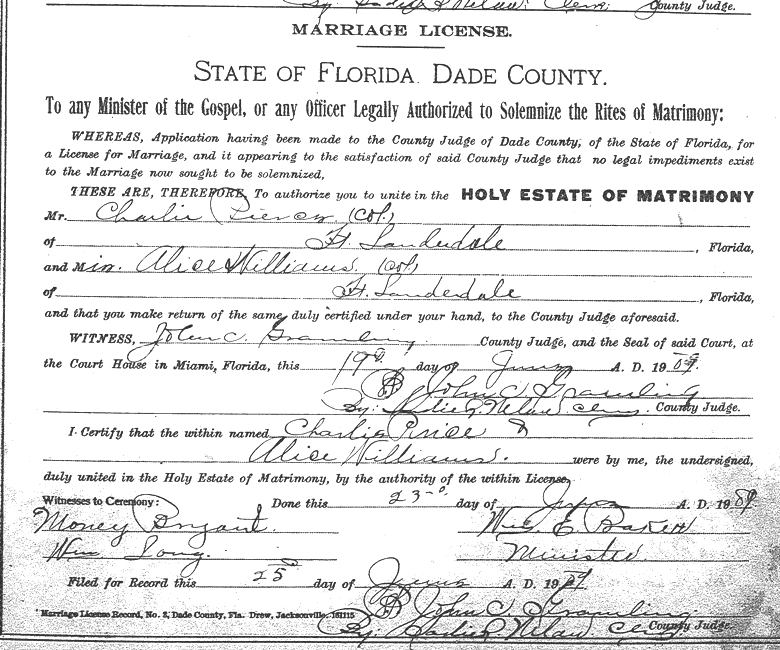 County Judge.
MARRIAGE LICENSE.
STATE OF FLORIDA DADE COUNTY.
To any Minister of the Gospel, or any Officer Legally Authorized to Solemnize the Rites of Matrimony:
WHEREAS, Application having been made to the County Judge of Dade County, of the State of Florida, for
a License for Marriage, and it appearing to the satisfaction of said County Judge that no legal impediments exist
to the Marriage now sought to be solemnized,
THESE ARE, THEREFORE, To authorize you to unite in the HOLY ESTATE OF MATRIMONY
Mr. Charlie (Col.)
of Ft. Lauderdale, Florida,
and Miss. Alice Williams. (Col.)
of Ft. Lauderdale, Florida,
and that you make return of the same, duly certified under your hand, to the County Judge aforesaid.
WITNESS, John C. Gramling, County Judge, and the Seal of said Court, at
the Court House in Miami, Florida, this 19 day of June A. D. 1909
John C. Gramling
By: Clerk. County Judge.
I Certify that the within named Charlie Price &
Alice Williams. were by me, the undersigned,
duly united in the Holy Estate of Matrimony, by the authority of the within License,
Witnesses to Ceremony: Done this 23 day of June A. D. 1909
Money Bryant. Wm. E. Baker
Wm Long. Minister
Filed for Record this 25 day of June A. D. 1909
John C. Gramling.
Marriage License Record, No. 8, Dade County, Fla. Drew, Jacksonville. 151115
By: Clerk County Judge.